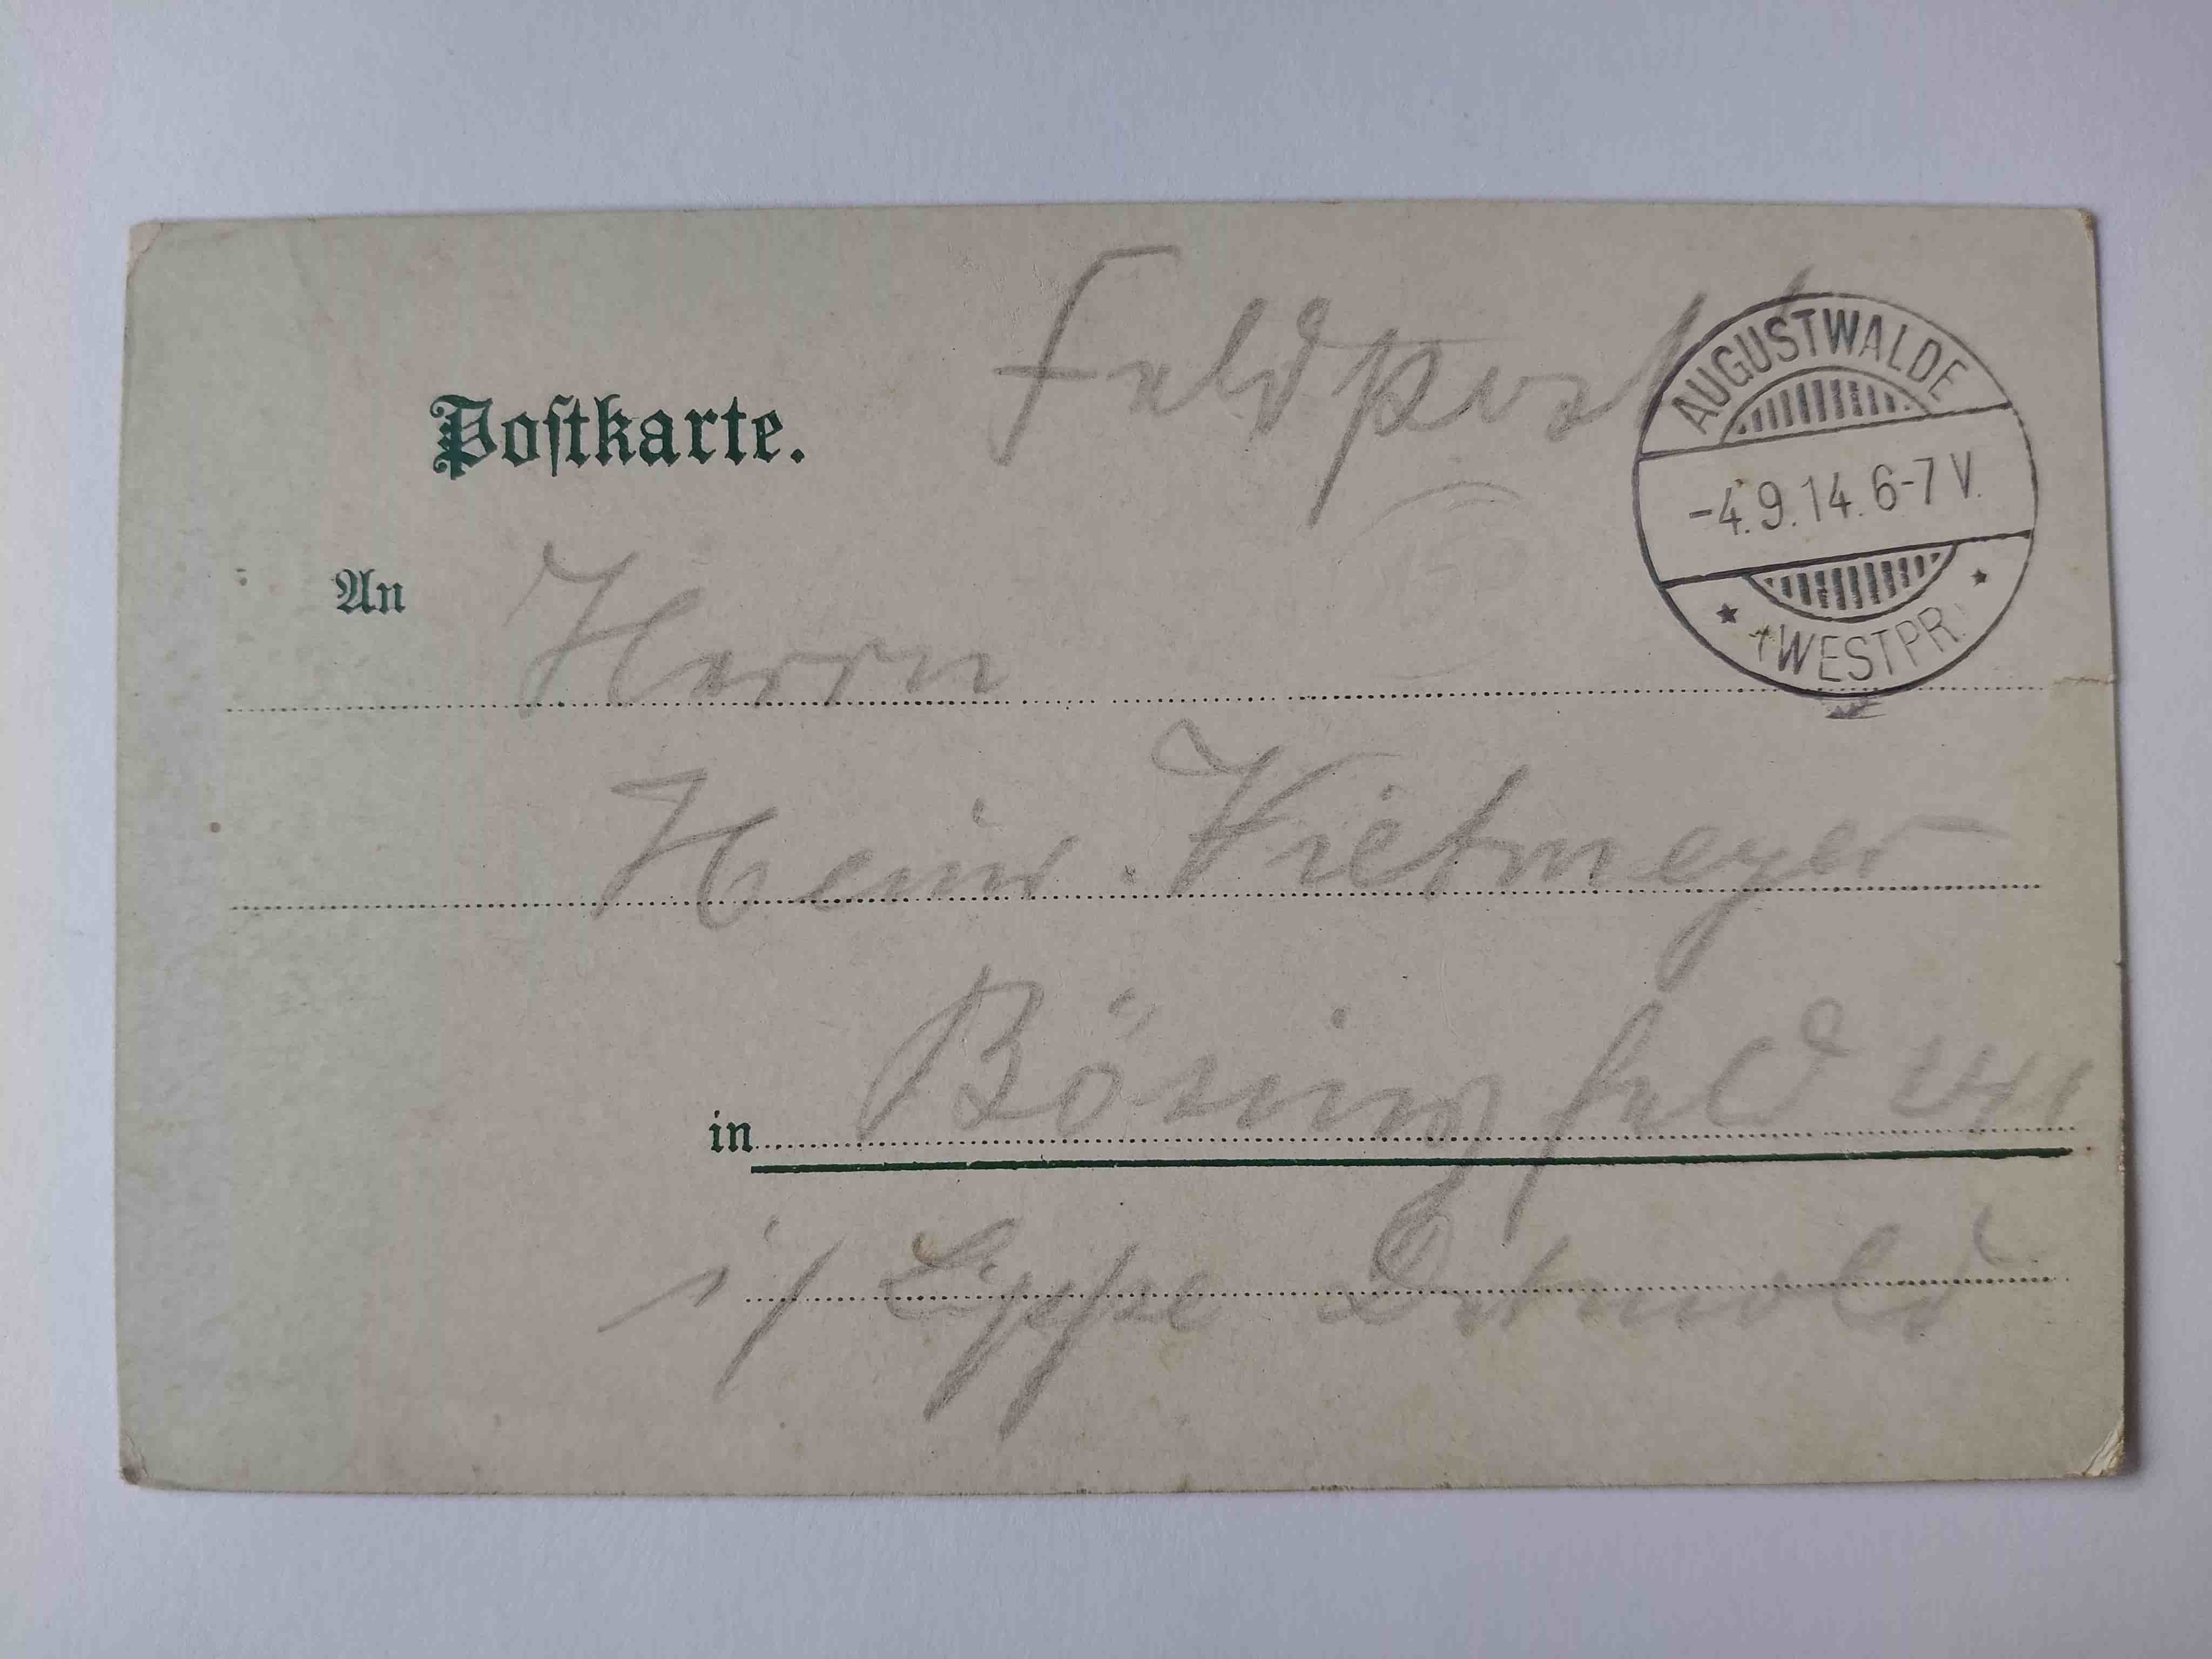 Feldpost
AUGUSTWALDE
-4.9.14.6-7 V.
* (WESTPR.) *
Postkarte.
An Herrn
Heinr. Vietmeyer
in Bösingfeld
i/ Lippe Detmold